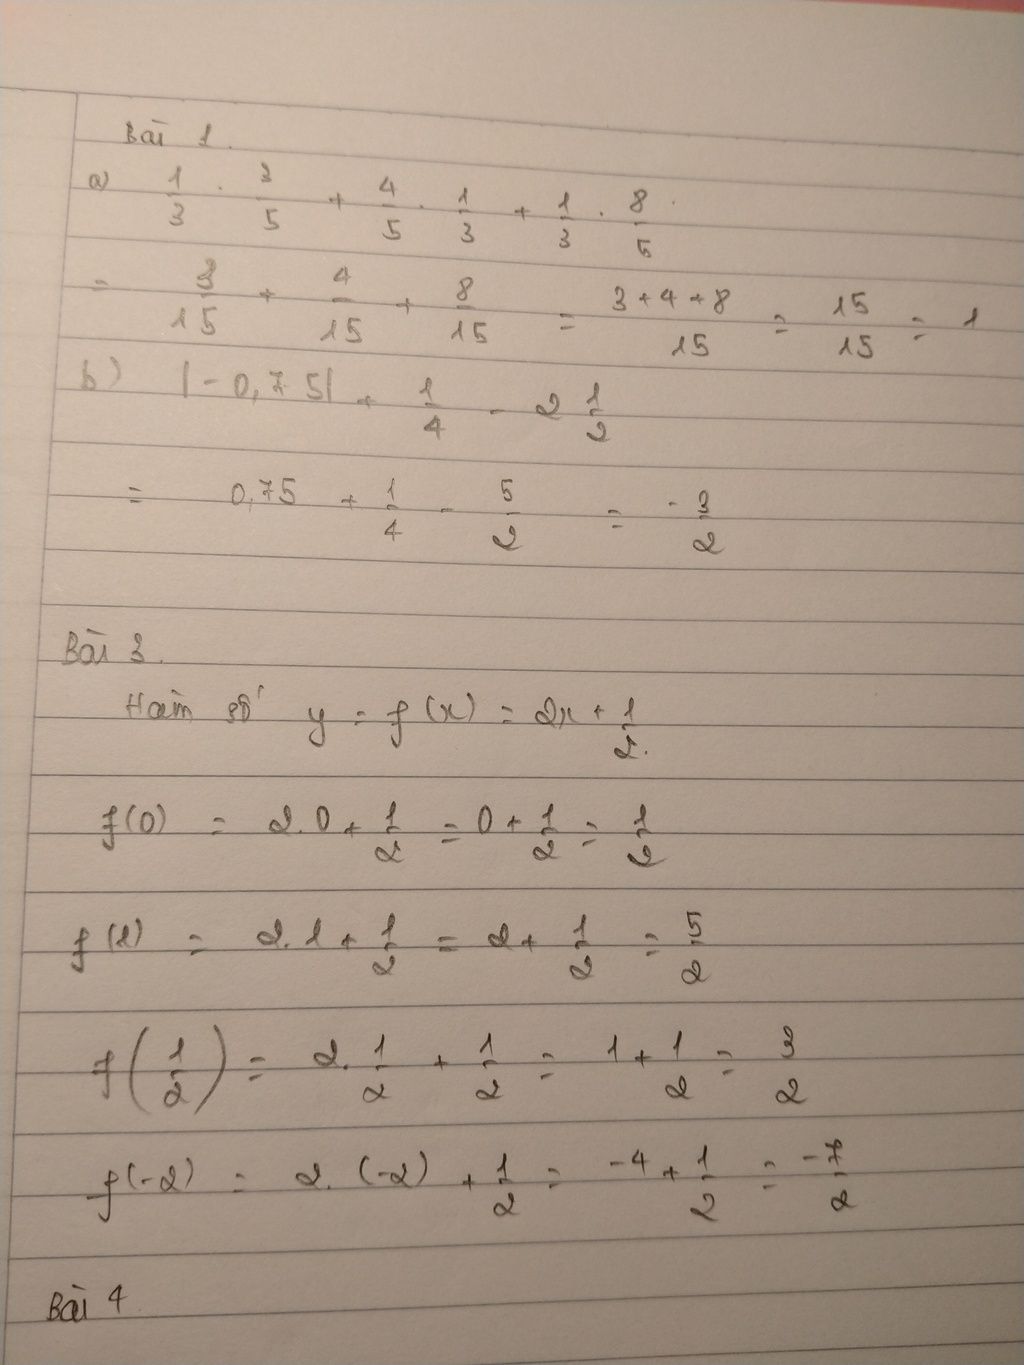 Bài 1.
a) 1/3 . 3/5 + 4/5 . 1/3 + 1/3 . 8/5
= 3/15 + 4/15 + 8/15 = (3+4+8)/15 = 15/15 = 1
b) |-0,75| + 1/4 - 2 1/2
= 0,75 + 1/4 - 5/2 = -3/2
Bài 3.
Hàm số y = f(x) = 2x + 1/2.
f(0) = 2.0 + 1/2 = 0 + 1/2 = 1/2
f(1) = 2.1 + 1/2 = 2 + 1/2 = 5/2
f(1/2) = 2. 1/2 + 1/2 = 1 + 1/2 = 3/2
f(-2) = 2. (-2) + 1/2 = -4 + 1/2 = -7/2
Bài 4